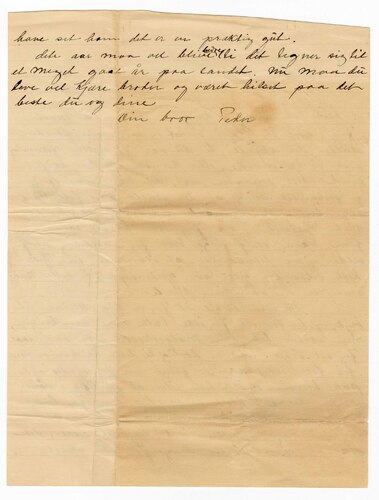 have set ham det er en prektig gut.
dete aar maa vel blive bra thi det tegner sig til
et meget gaat år paa landet. nu maa du
leve vel kjære broder og været hilset paa det
beste du og dine
Din bror Peder